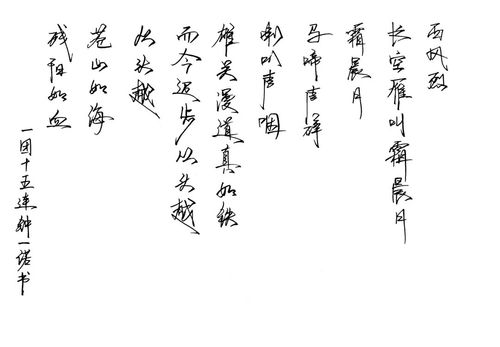 西风烈
长空雁叫霜晨月
霜晨月
马啼声碎
喇叭声咽
雄关漫道真如铁
而今迈步从头越
从头越
苍山如海
残阳如血
一团十五连钟一诺书